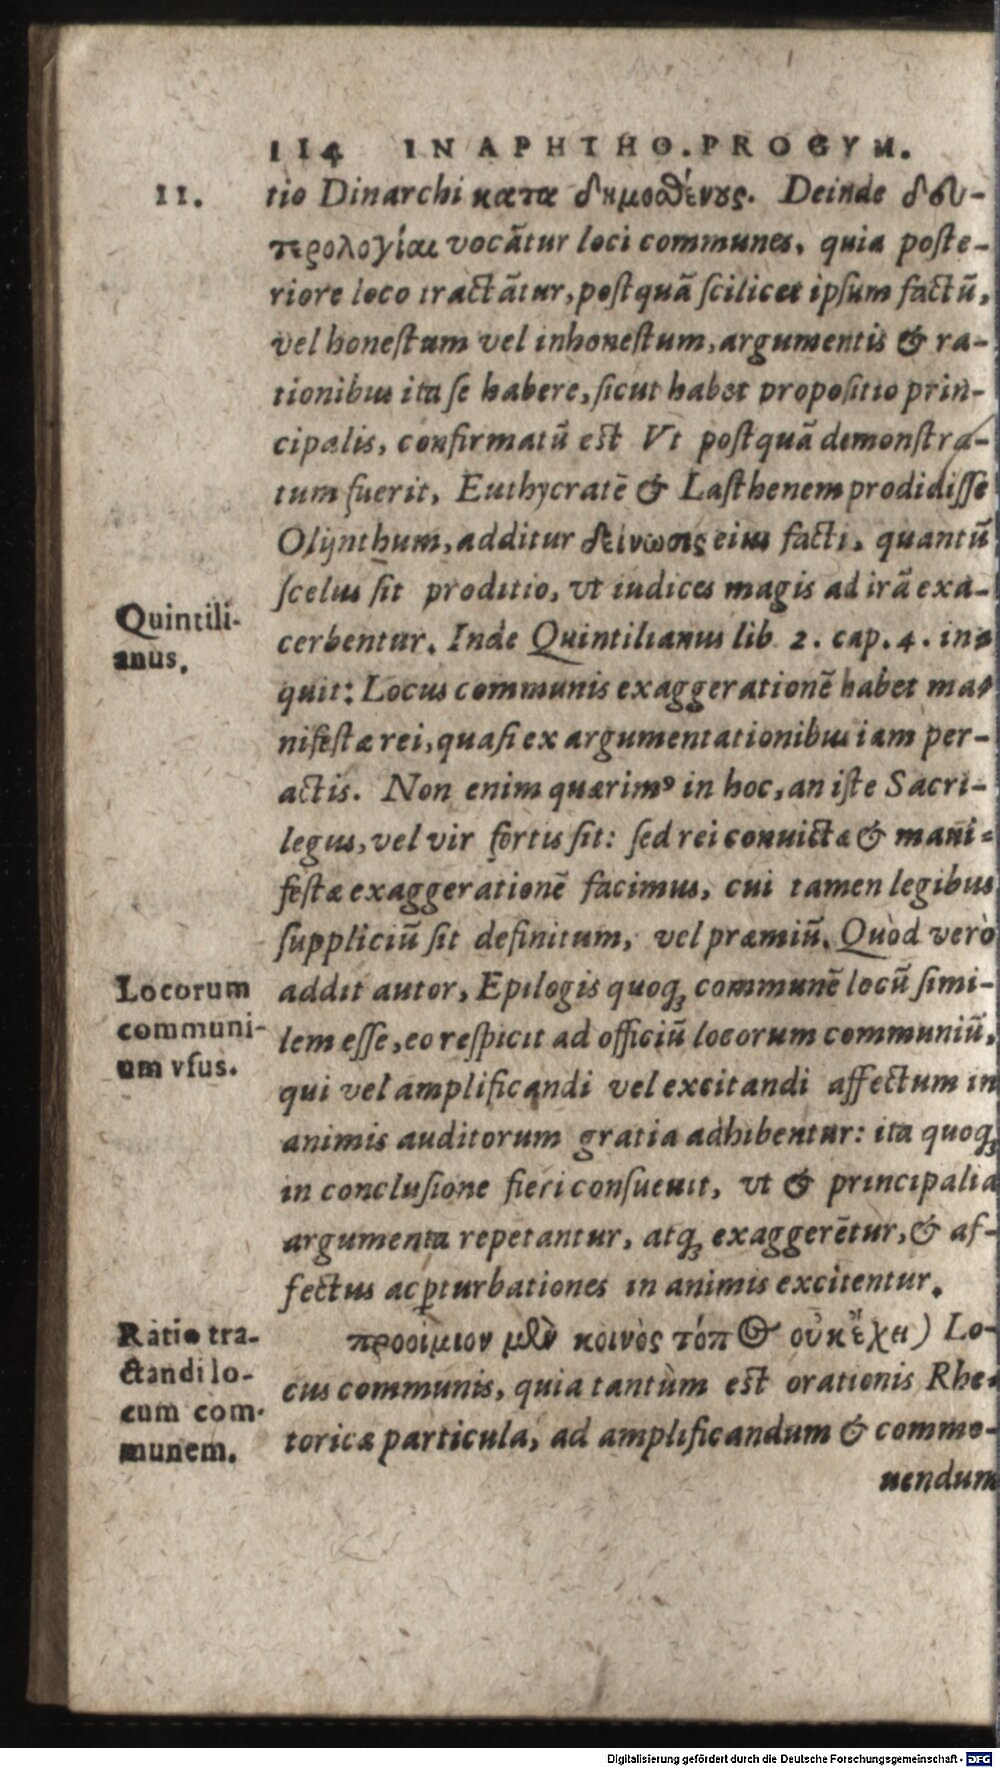 114 IN APHTHO. PROGYM.
II.
tio Dinarchi κατα δημοσθένους. Deinde δευ-
τερολογίαι vocãtur loci communes, quia poſte-
riore loco tractãtur, poſtquã ſcilicet ipſum factũ,
vel honeſtum vel inhoneſtum, argumentis & ra-
tionibus ita ſe habere, ſicut habet propoſitio prin-
cipalis, confirmatũ eſt Vt poſtquã demonſtra-
tum fuerit, Euthycratẽ & Laſthenem prodidiſſe
Olynthum, additur δείνωσις eius facti, quantũ
ſcelus ſit proditio, vt iudices magis ad irã exa-
Quintili-
anus.
cerbentur. Inde Quintilianus lib 2. cap. 4. in-
quit: Locus communis exaggerationẽ habet ma-
nifeſtæ rei, quaſi ex argumentationibus iam per-
actis. Non enim quærimꝰ in hoc, an iſte Sacri-
legus, vel vir fortis ſit: ſed rei conuictæ & mani-
feſtæ exaggerationẽ facimus, cui tamen legibus
ſuppliciũ ſit definitum, vel præmiũ. Quòd verò
Locorum
communi-
um vſus.
addit autor, Epilogis quoq; communẽ locũ ſimi-
lem eſſe, eo reſpicit ad officiũ locorum communiũ,
qui vel amplificandi vel excitandi affectum in
animis auditorum gratia adhibentur: ita quoq;
in concluſione fieri conſueuit, vt & principalia
argumenta repetantur, atq; exaggerẽtur, & af-
fectus ac ꝑturbationes in animis excitentur.
Ratio tra-
ctandi lo-
cum com-
munem.
προοίμιον μὲν κοινὸς τόπος οὐκ ἔχει) Lo-
cus communis, quia tantùm eſt orationis Rhe-
toricæ particula, ad amplificandum & commo-
uendum
Digitalisierung gefördert durch die Deutsche Forschungsgemeinschaft - DFG